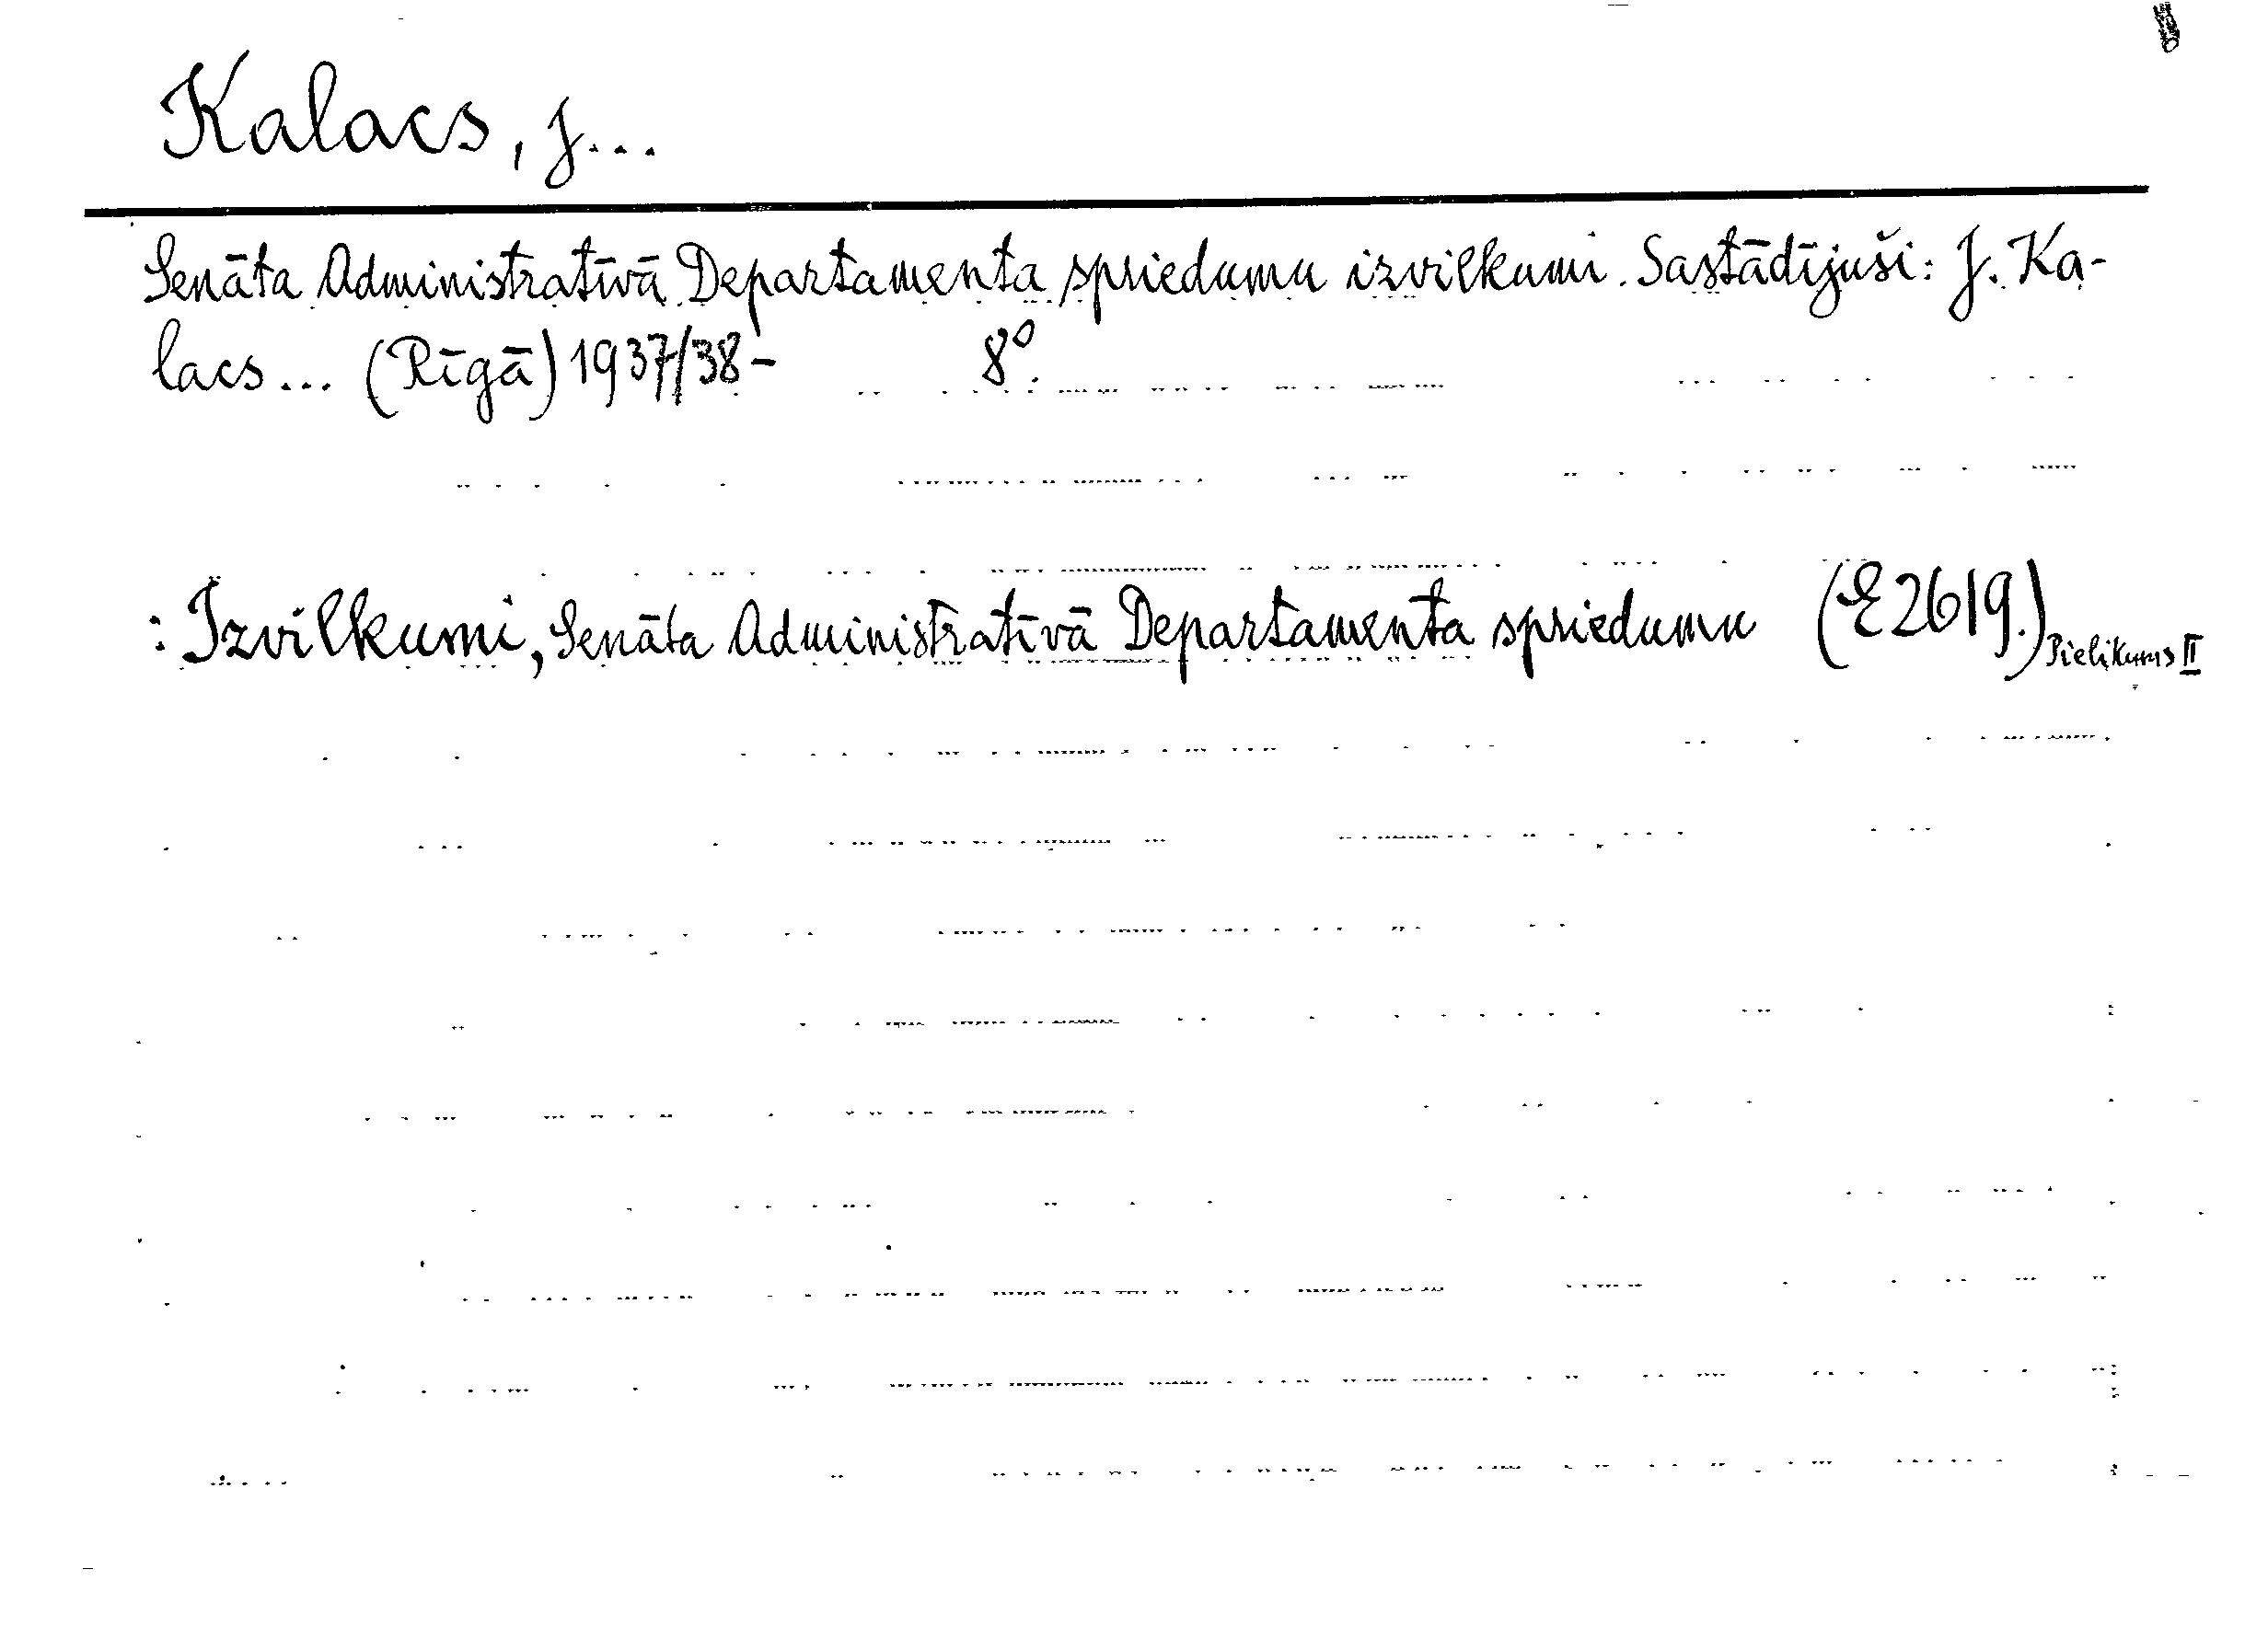 Kalacs, J...
Senāta Administratīvā Departamenta spriedumu izvilkumi. Sastādījuši: J. Ka-
lacs... (Rīgā) 1937/38- 8°.
: Izvilkumi, Senāta Administratīvā Departamenta spriedumu (E 2619.) Pielikums II